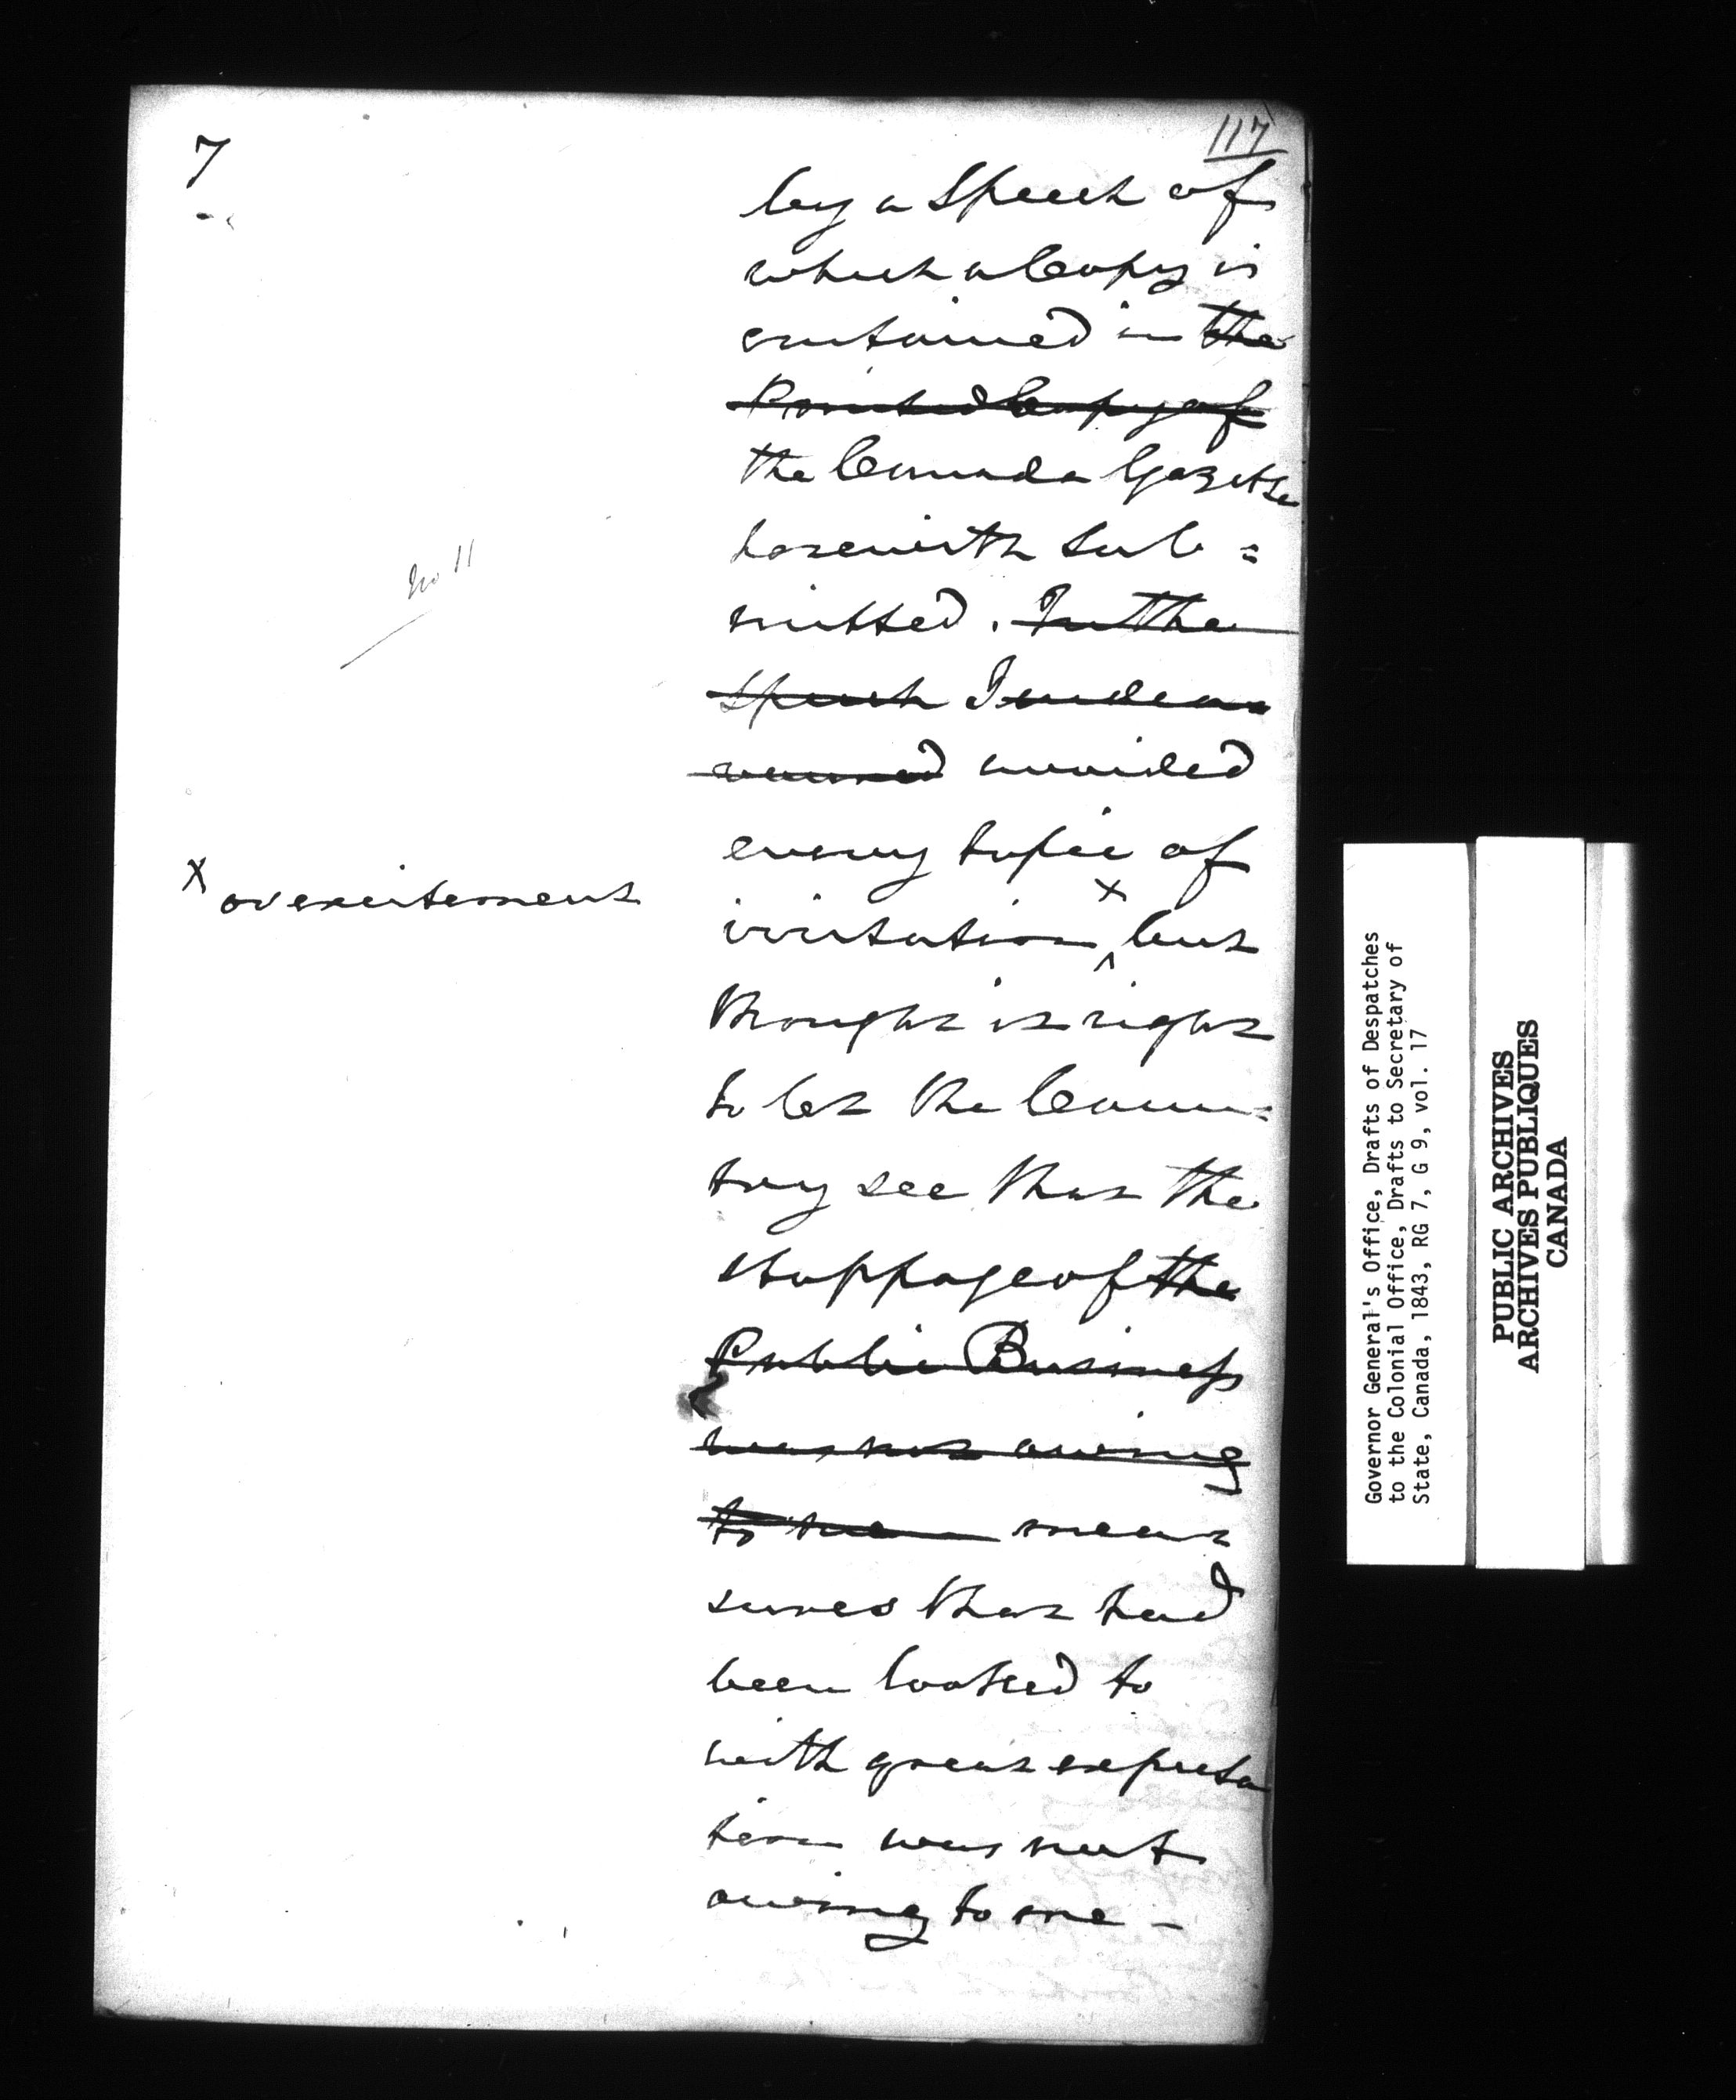 117
7
by a Speech of
which a Copy is
contained in the
Printed Copy of
the Canada Gazette
herewith sub=
mitted. In the
Speech I endea
voured avoided
every topic of
x
x or excitement
irritation ^ but
thought it right
to let the Coun=
try see that the
stoppage of the
Public Business
was not owing
to me mea
sures that had
been looked to
with great expecta
tion was not
owing to me -
No 11
Governor General's Office, Drafts of Despatches
to the Colonial Office, Drafts to Secretary of
State, Canada, 1843, RG 7, G 9, vol. 17
PUBLIC ARCHIVES
ARCHIVES PUBLIQUES
CANADA